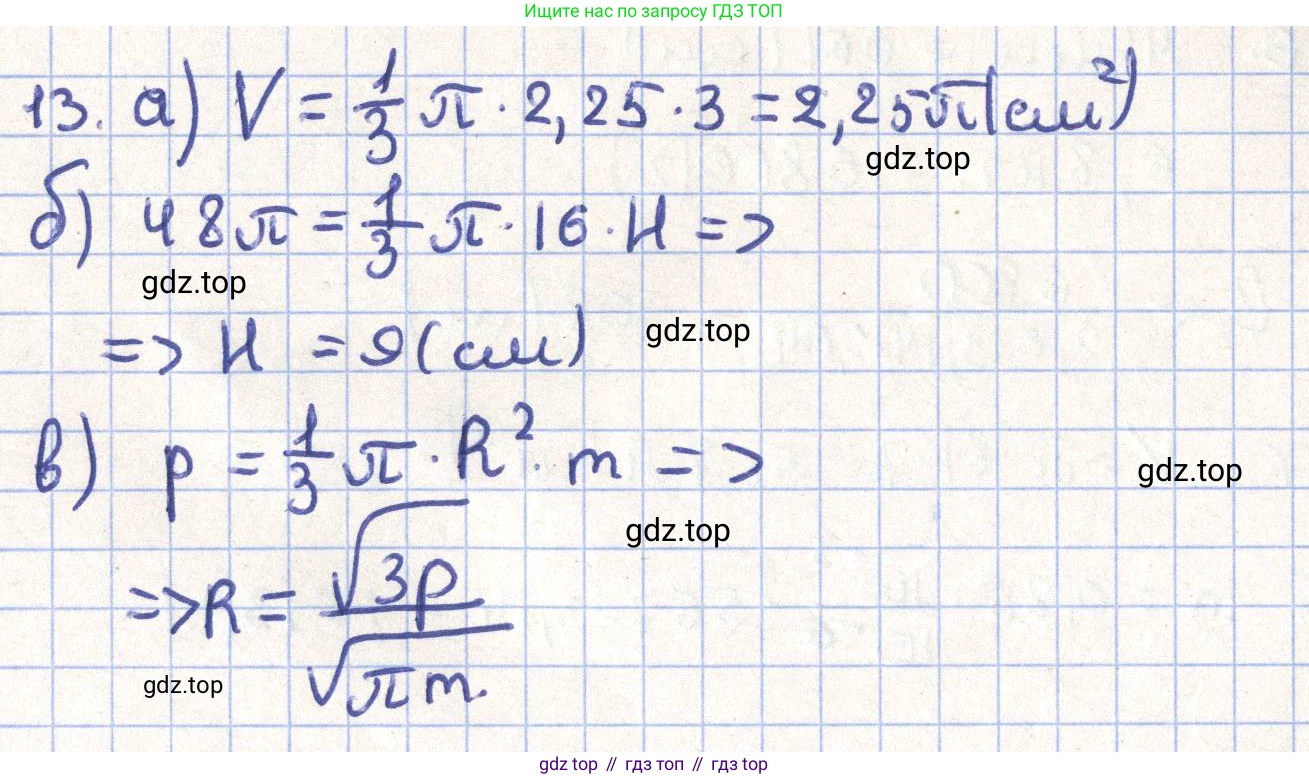 Ищите нас по запросу ГДЗ ТОП
13. а) V = 1/3 π · 2,25 · 3 = 2,25π (см²)
gdz.top
б) 48π = 1/3 π · 16 · H =>
gdz.top
=> H = 9 (см)
gdz.top
в) p = 1/3 π · R² · m =>
gdz.top
gdz.top
=> R = √3p / √πm.
gdz.top
gdz top // гдз топ // гдз top